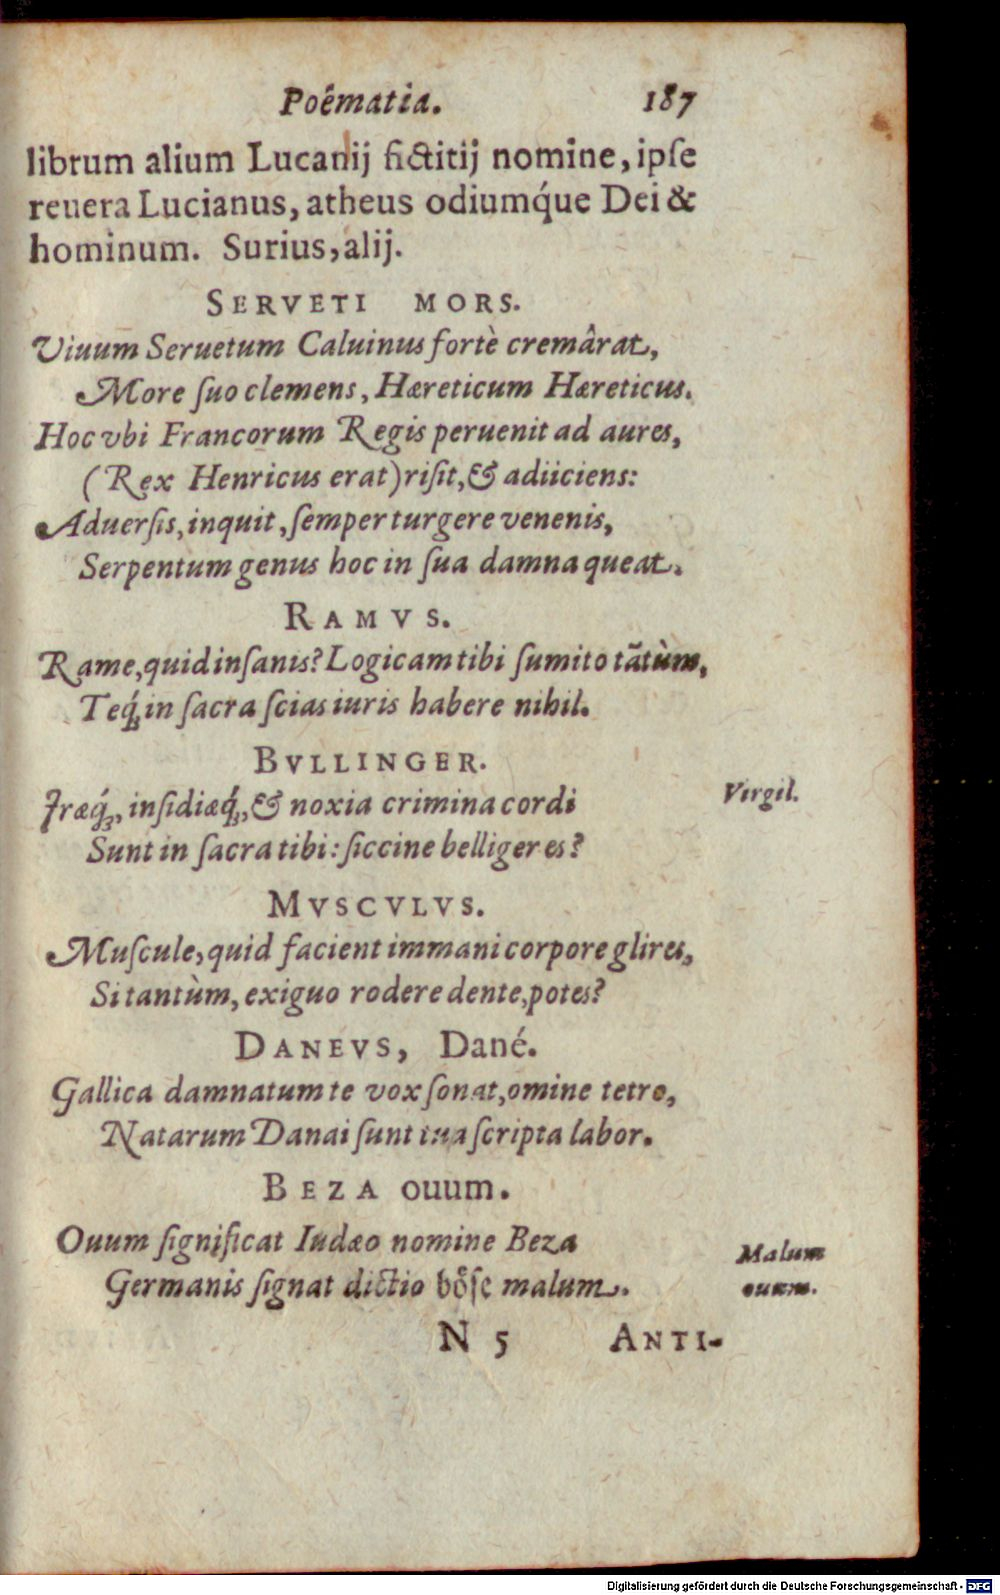 Poêmatia. 187
librum alium Lucanij fictitij nomine, ipſe
reuera Lucianus, atheus odiumq́ue Dei &
hominum. Surius, alij.
SERVETI MORS.
Viuum Seruetum Caluinus fortè cremârat,
More ſuo clemens, Hæreticum Hæreticus.
Hoc vbi Francorum Regis peruenit ad aures,
(Rex Henricus erat) riſit, & adiiciens:
Aduerſis, inquit, ſemper turgere venenis,
Serpentum genus hoc in ſua damna queat.
RAMVS.
Rame, quid inſanis? Logicam tibi ſumito tātùm,
Teq́ꝫ in ſacra ſcias iuris habere nihil.
BVLLINGER.
Iræq́ꝫ, inſidiæq́ꝫ, & noxia crimina cordi
Virgil.
Sunt in ſacra tibi: ſiccine belliger es?
MVSCVLVS.
Muſcule, quid facient immani corpore glires,
Si tantùm, exiguo rodere dente, potes?
DANEVS, Dané.
Gallica damnatum te vox ſonat, omine tetro,
Natarum Danai ſunt tua ſcripta labor.
BEZA ouum.
Ouum ſignificat Iudæo nomine Beza
Malum
Germanis ſignat dictio böſe malum.
ouum.
N 5 ANTI-
Digitalisierung gefördert durch die Deutsche Forschungsgemeinschaft - DFG